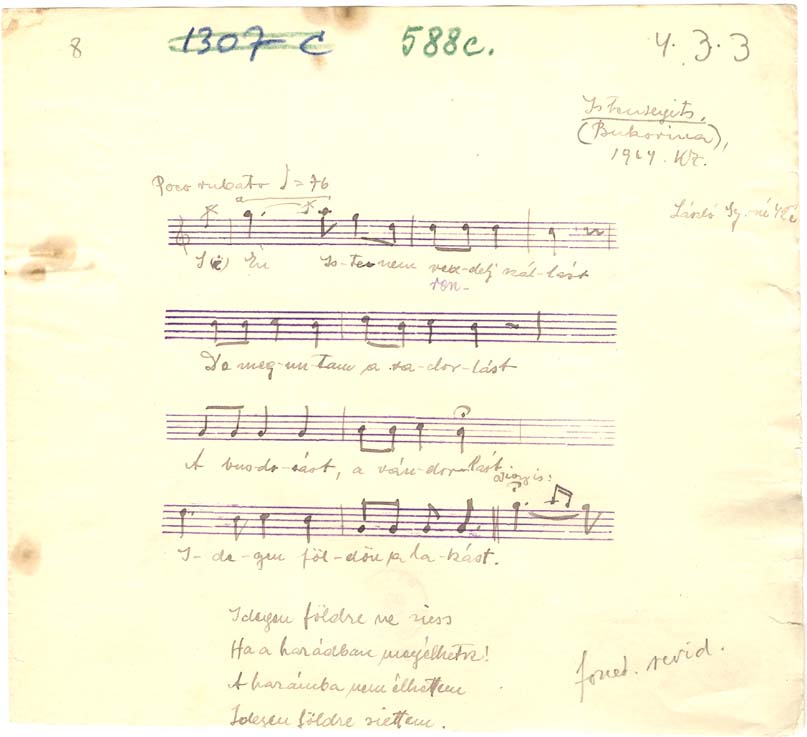 8 1307 C 588c. 4. 3. 3
Istensegits,
(Bukovina),
1914. KZ.
Poco rubato ♩=76
László Gy.-né
a
Én Is-tenem ren-delj szál-lást
ron-
De meg-un-tam a va-dor-lást
A buj-do-sást, a ván-dor-lást
így is:
I-de-gen föl-dön la-kást.
Idegen földre ne siess
Ha a hazádban megélhetsz!
A hazámba nem élhettem
Idegen földre siettem.
fonet. revid.